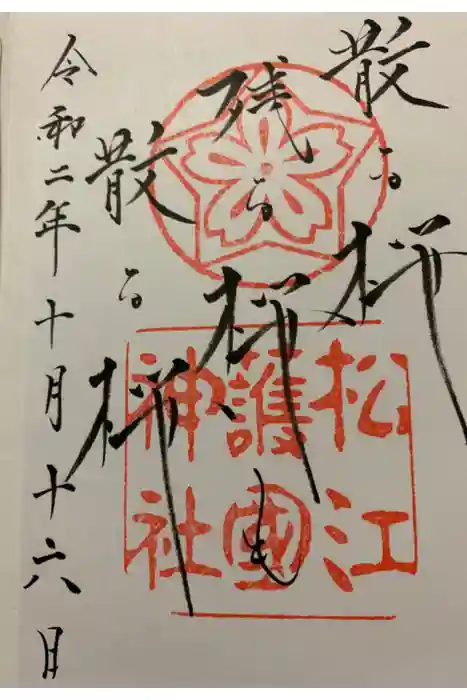 散る桜
残る桜も
散る桜
令和二年十月十六日
松江
護國
神社